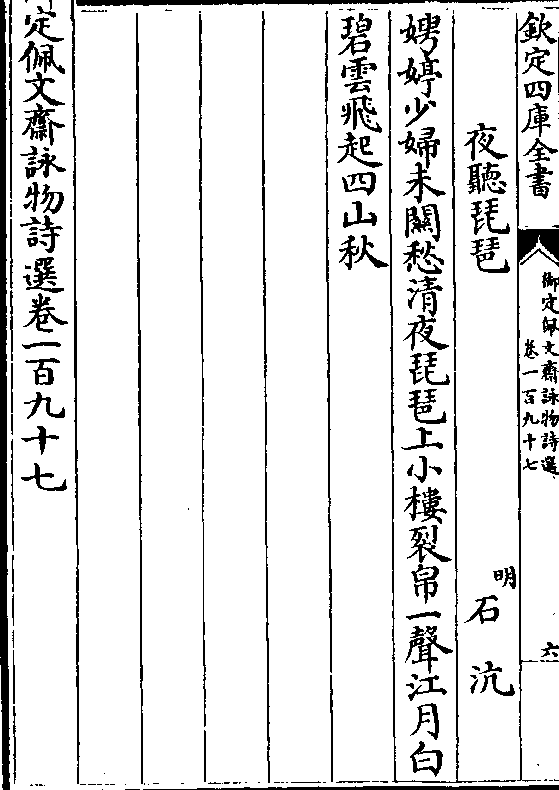 欽定四庫全書
御定佩文齋詠物詩選
卷一百九十七
六
夜聽琵琶
明
石沆
娉婷少婦未關愁清夜琵琶上小樓裂帛一聲江月白
碧雲飛起四山秋
定佩文齋詠物詩選卷一百九十七